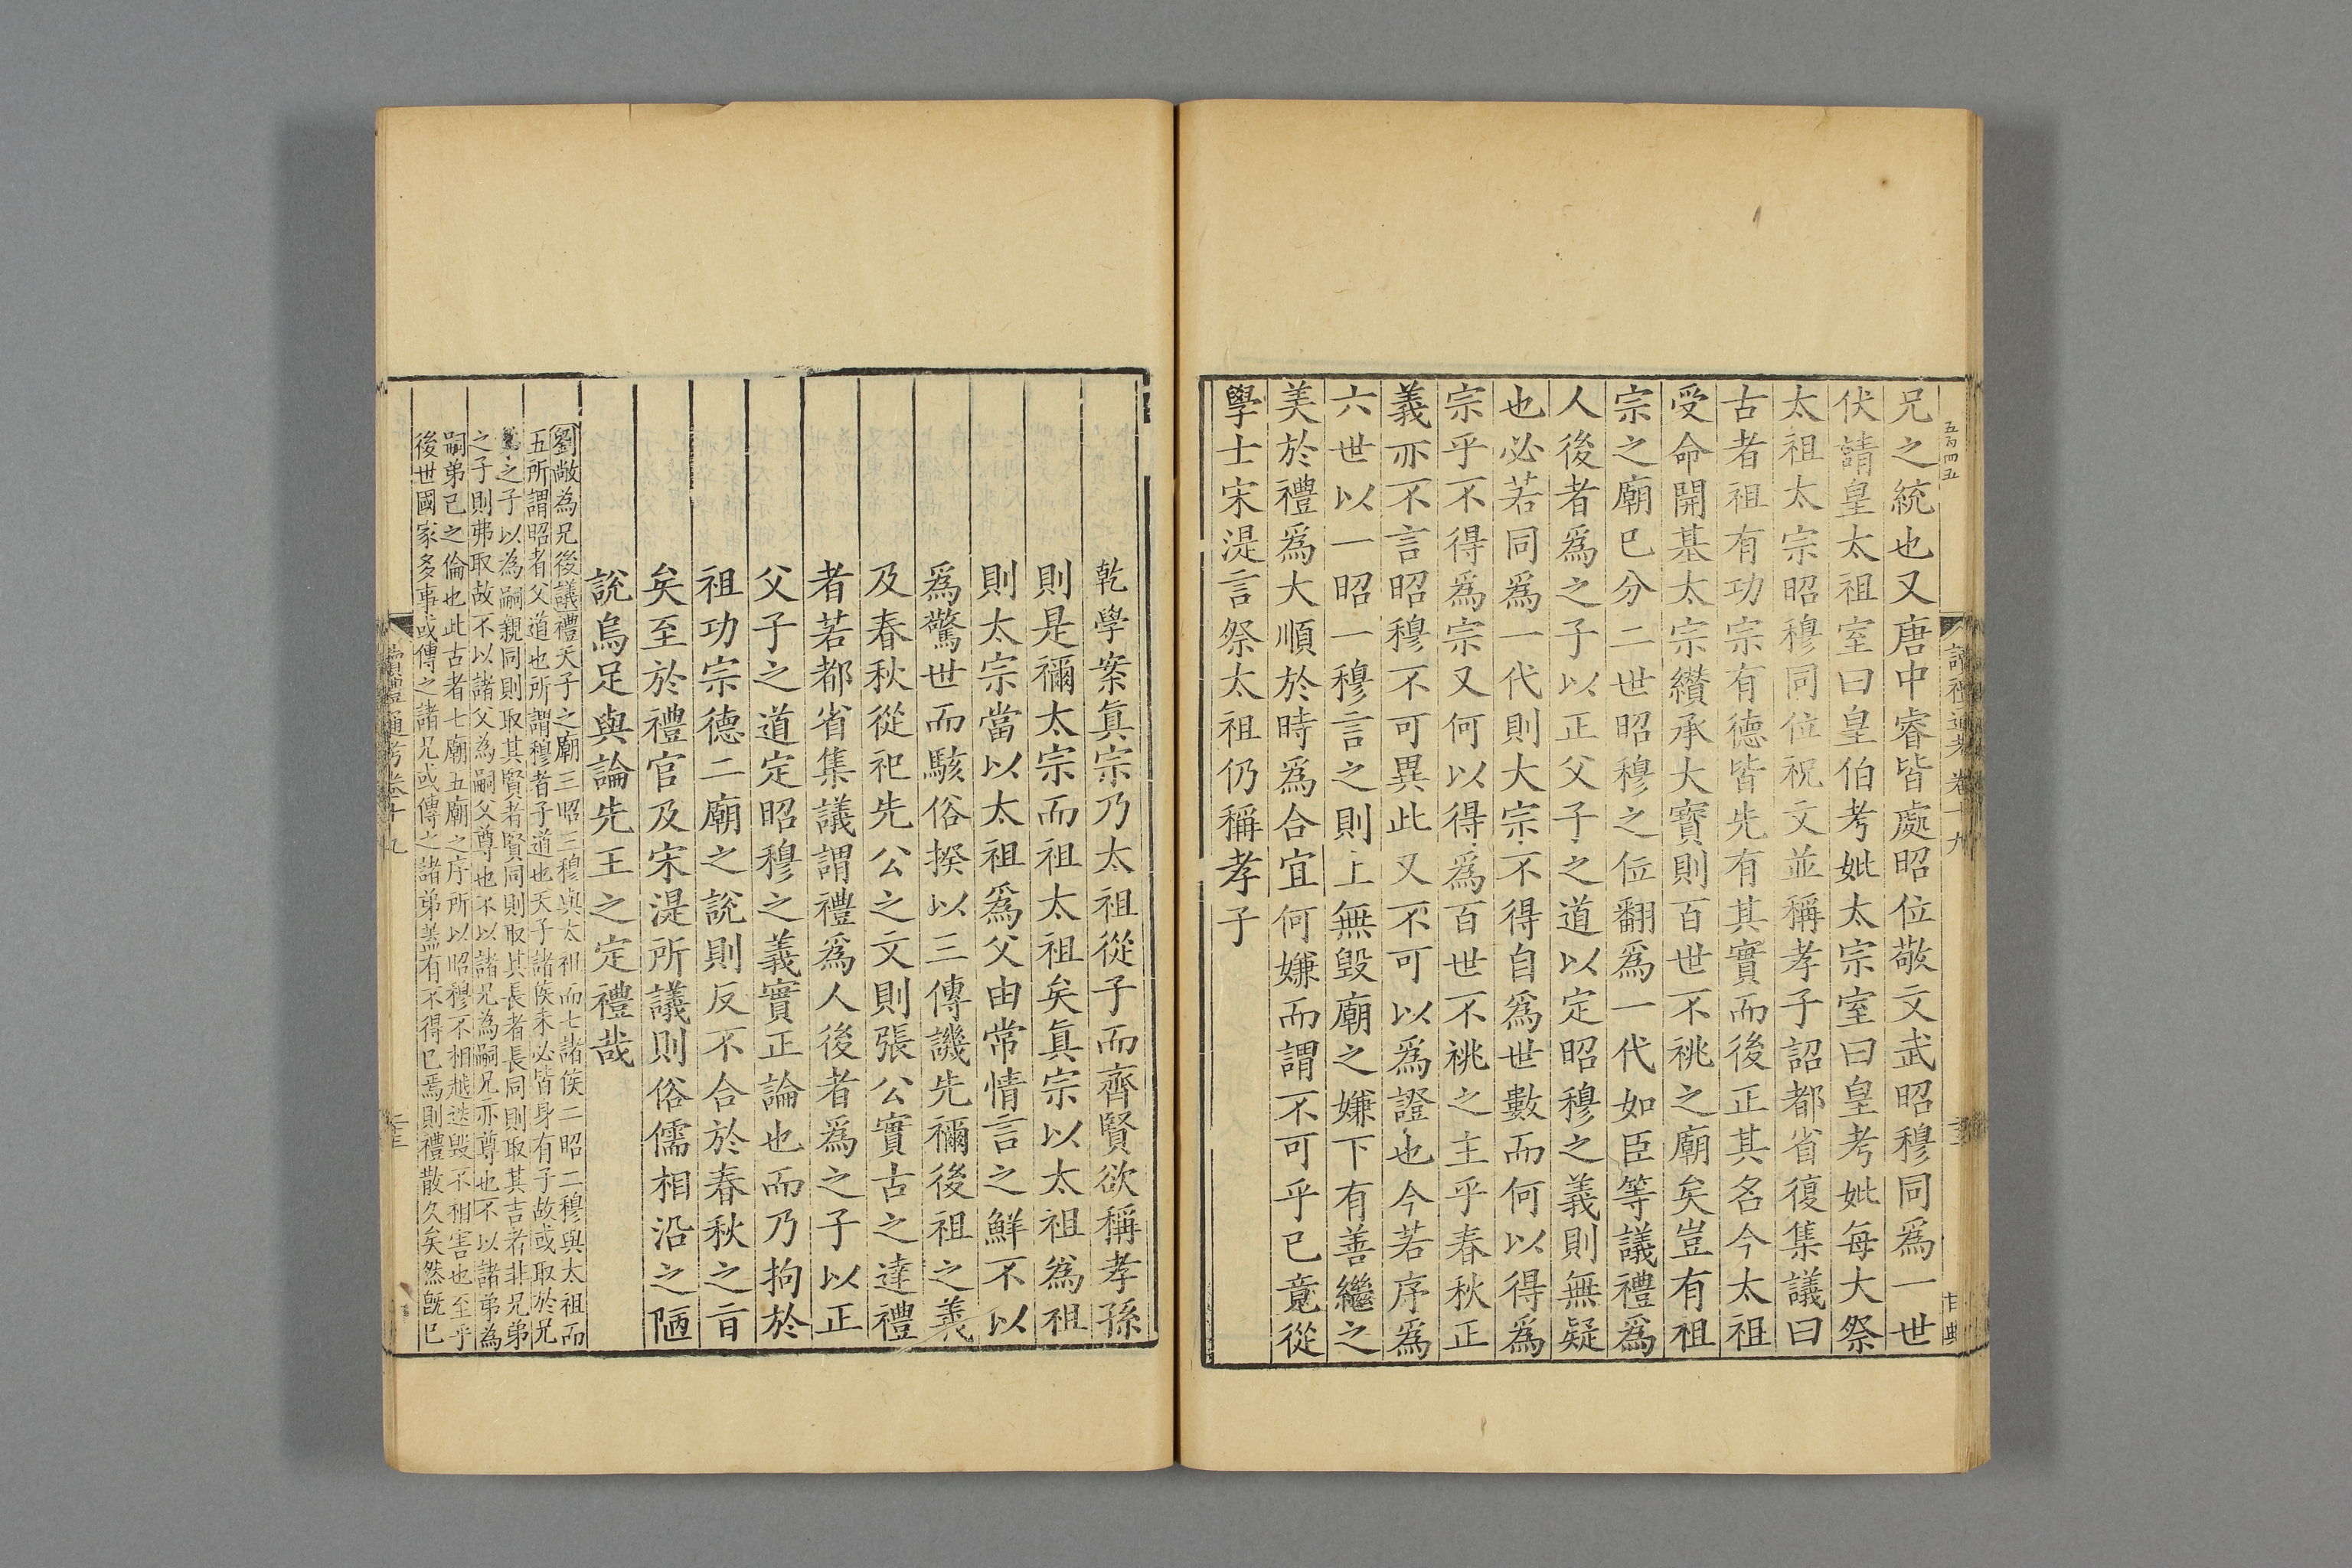 五百四五
讀禮通考卷十九
兄之統也又唐中睿皆處昭位敬文武昭穆同爲一世
伏請皇太祖室曰皇伯考妣太宗室曰皇考妣每大祭
太祖太宗昭穆同位祝文並稱孝子詔都省復集議曰
古者祖有功宗有德皆先有其實而後正其名今太祖
受命開基太宗纘承大寶則百世不祧之廟矣豈有祖
宗之廟已分二世昭穆之位翻爲一代如臣等議禮爲
人後者爲之子以正父子之道以定昭穆之義則無疑
也必若同爲一代則大宗不得自爲世數而何以得爲
宗乎不得爲宗又何以得爲百世不祧之主乎春秋正
義亦不言昭穆不可異此又不可以爲證也今若序爲
六世以一昭一穆言之則上無毀廟之嫌下有善繼之
美於禮爲大順於時爲合宜何嫌而謂不可乎已竟從
學士宋湜言祭太祖仍稱孝子
乾學案眞宗乃太祖從子而齊賢欲稱孝孫
則是禰太宗而祖太祖矣眞宗以太祖爲祖
則太宗當以太祖爲父由常情言之鮮不以
爲驚世而駭俗揆以三傳譏先禰後祖之義
及春秋從祀先公之文則張公實古之達禮
者若都省集議謂禮爲人後者爲之子以正
父子之道定昭穆之義實正論也而乃拘於
祖功宗德二廟之說則反不合於春秋之㫖
矣至於禮官及宋湜所議則俗儒相沿之陋
說烏足與論先王之定禮哉
劉敞為兄後議禮天子之廟三昭三穆與太祖而七諸侯二昭二穆與太祖而
五所謂昭者父道也所謂穆者子道也天子諸侯未必皆身有子故或取於兄
弟之子以為嗣親同則取其賢者賢同則取其長者長同則取其吉者非兄弟
之子則弗取故不以諸父為嗣父尊也不以諸兄為嗣兄亦尊也不以諸弟為
嗣弟己之倫也此古者七廟五廟之序所以昭穆不相越迭毀不相害也至乎
後世國家多事或傳之諸兄或傳之諸弟蓋有不得已焉則禮散久矣然旣已
讀禮通考卷十九